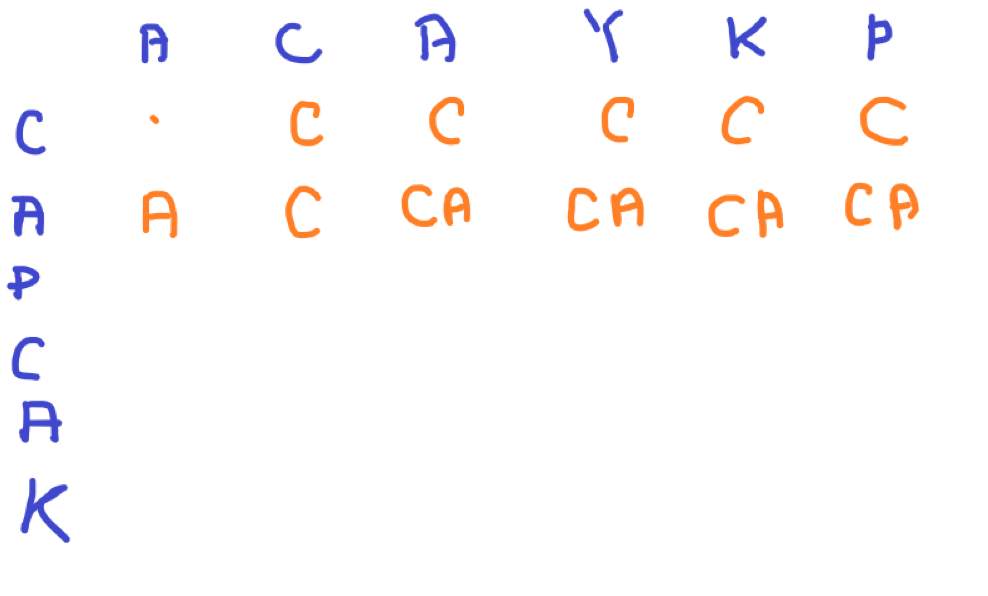 A C A Y K P
C · C C C C C
A A C CA CA CA CA
P
C
A
K